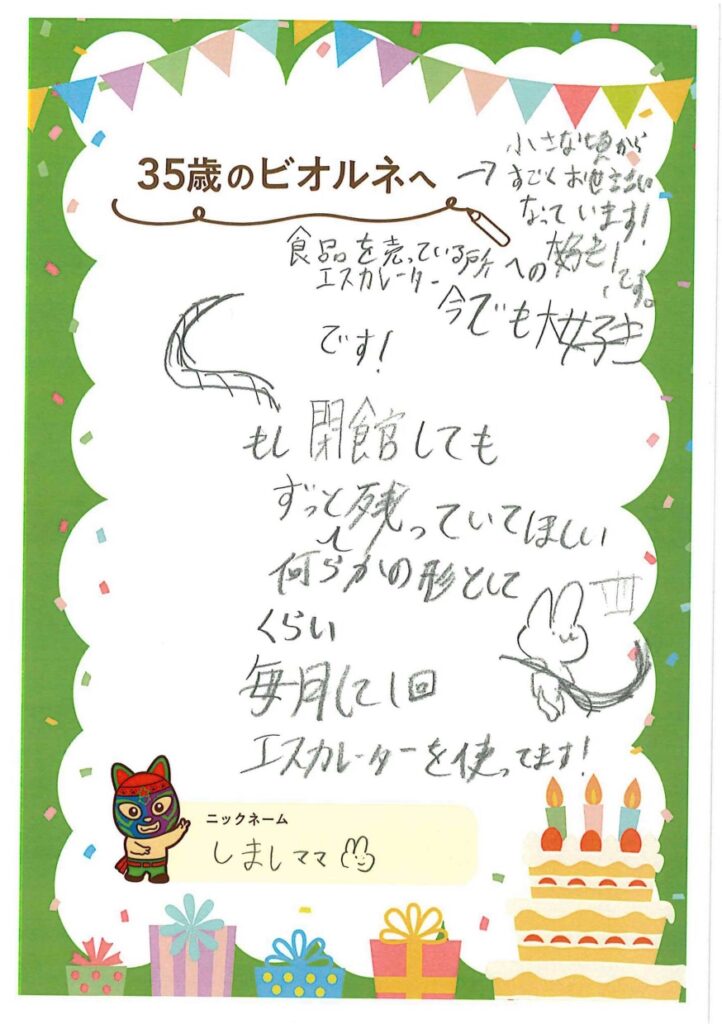 35歳のビオルネへ
→ 小さな頃から
すごくお世話に
なっています!
食品を売っている所への
エスカレーター
大好き!
です。
今でも大好き
です!
もし閉館しても
ずっと残っていてほしい
何らかの形として
くらい
毎月に1回
エスカレーターを使ってます!
ニックネーム
しましママ